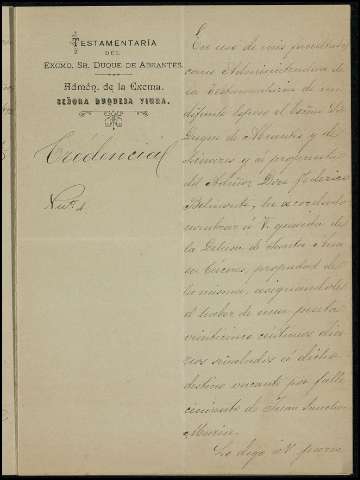 TESTAMENTARÍA
DEL
EXCMO. SR. DUQUE DE ABRANTES
Admón. de la Excma.
SEÑORA DUQUESA VIUDA.
Credencial
En uso de mis facultades
como Administradora de
la Testamentaría de mi
difunto esposo el Excmo Sr
Duque de Abrantes y de
Linares y a propuesta
del Admor Don Federico
Belmonte, he acordado
nombrar á V. guarda de
la Dehesa de Santa Ana
en Cáceres, propiedad de
la misma, asignandole
el haber de una peseta
veinticinco céntimos dia
rios señalados á dicho
destino vacante por falle
cimiento de Juan Sancho
Marin.
Lo digo á V para